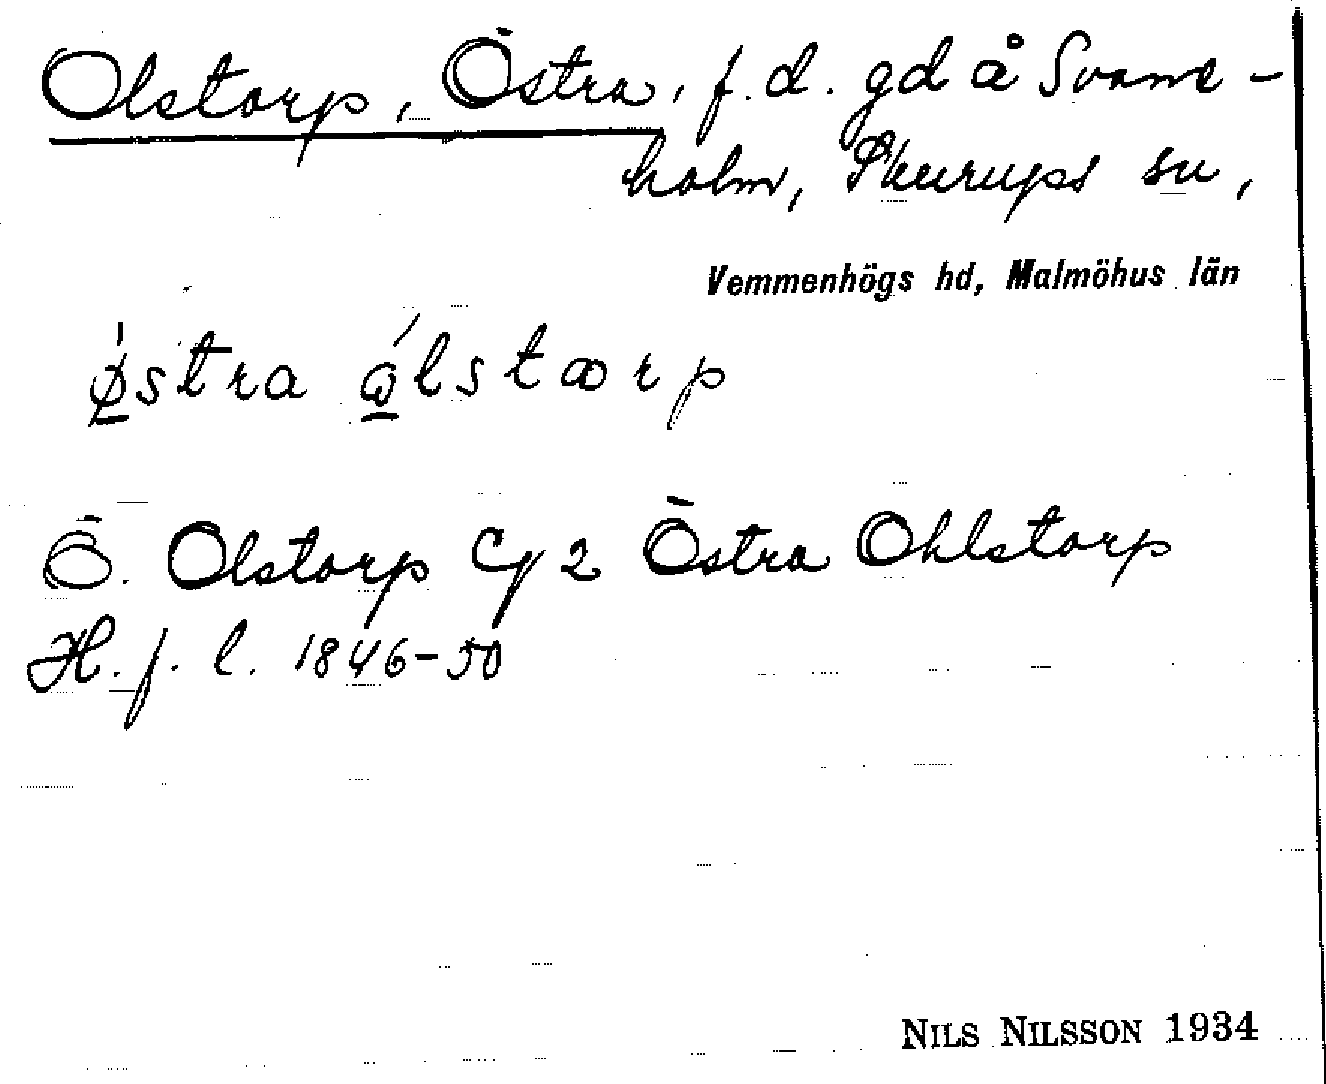 Olstorp, Östra, f.d. gd å Svane-
holm, Skurups sn,
Vemmenhögs hd, Malmöhus län
ǿ̠stra ǫ̠́lstœrp
Ö. Olstorp Cg 2 Östra Ohlstorp
H.f.l. 1846-50
NILS NILSSON 1934